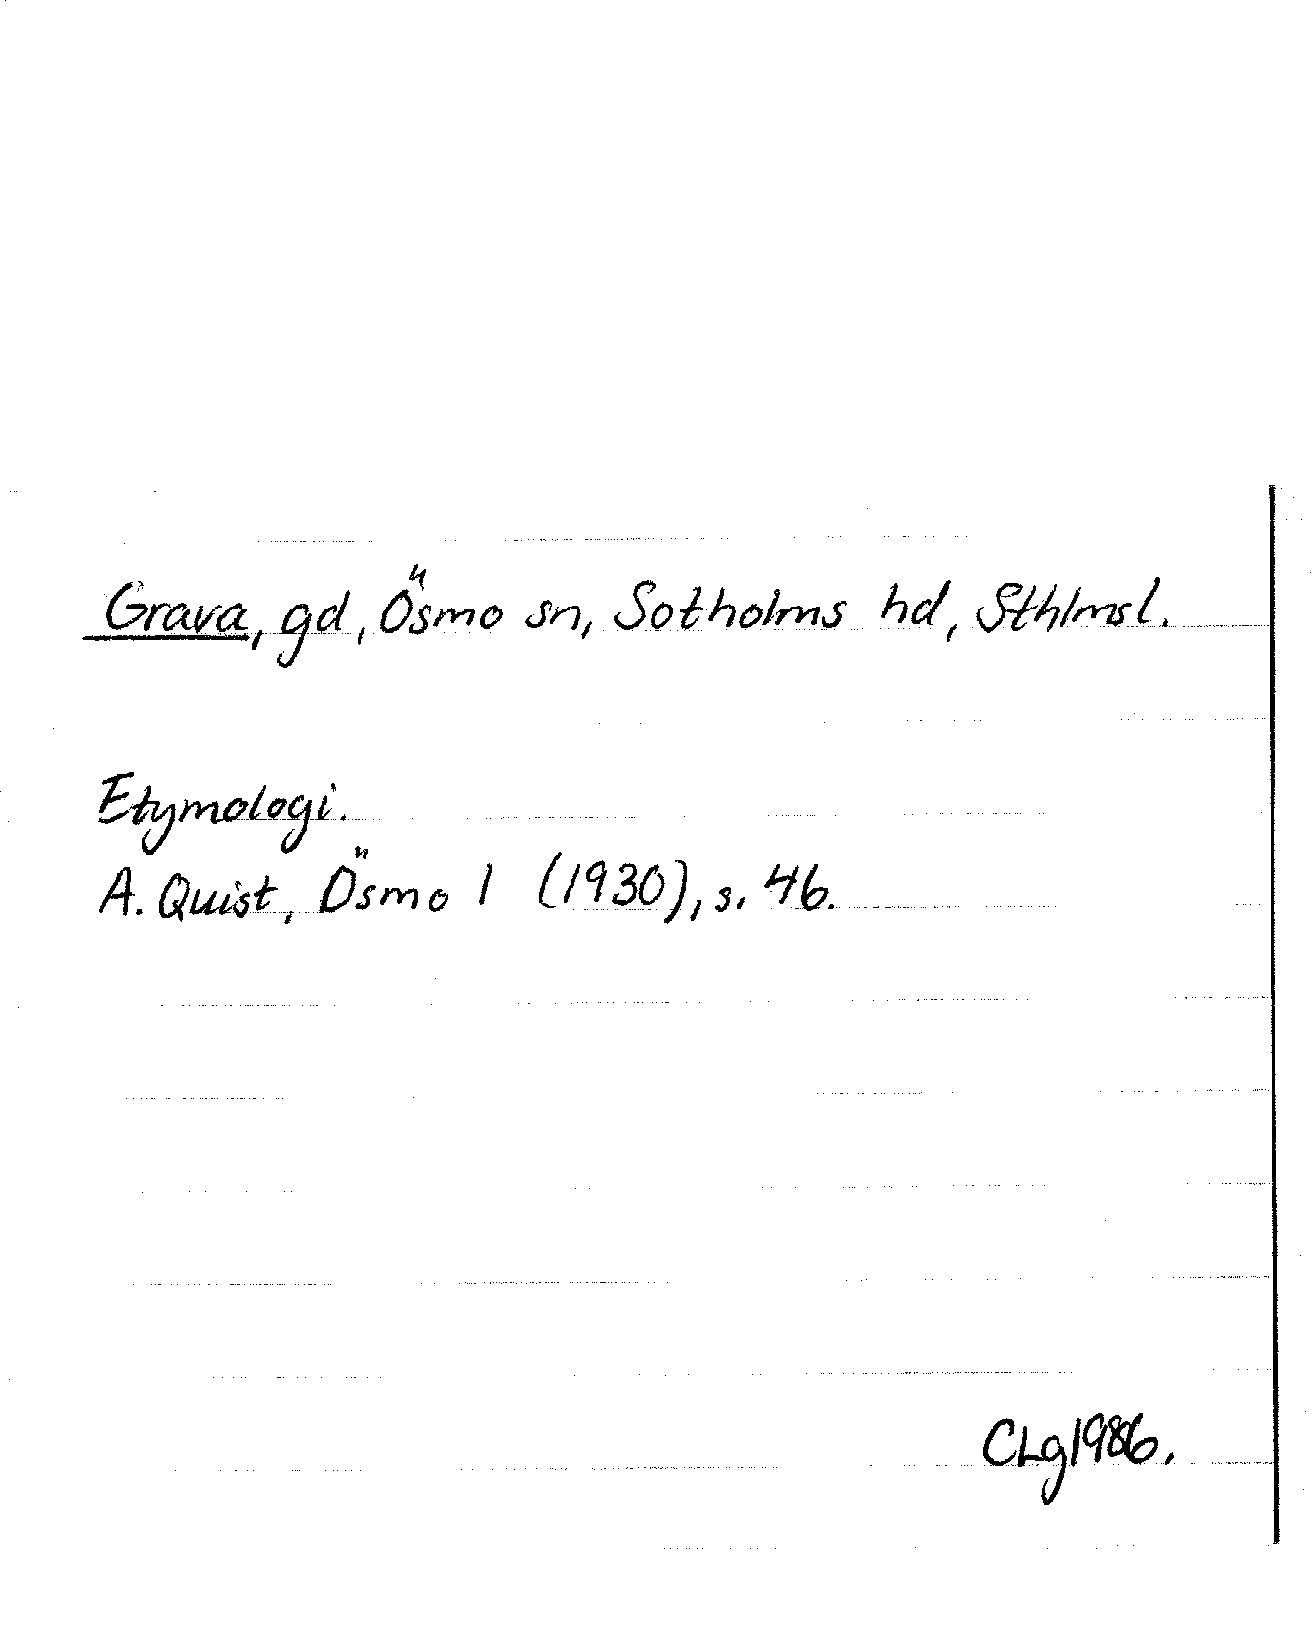 Grava, gd, Ösmo sn, Sotholms hd, Sthlmsl.
Etymologi.
A. Quist, Ösmo 1 (1930), s. 46.
CLg 1986.